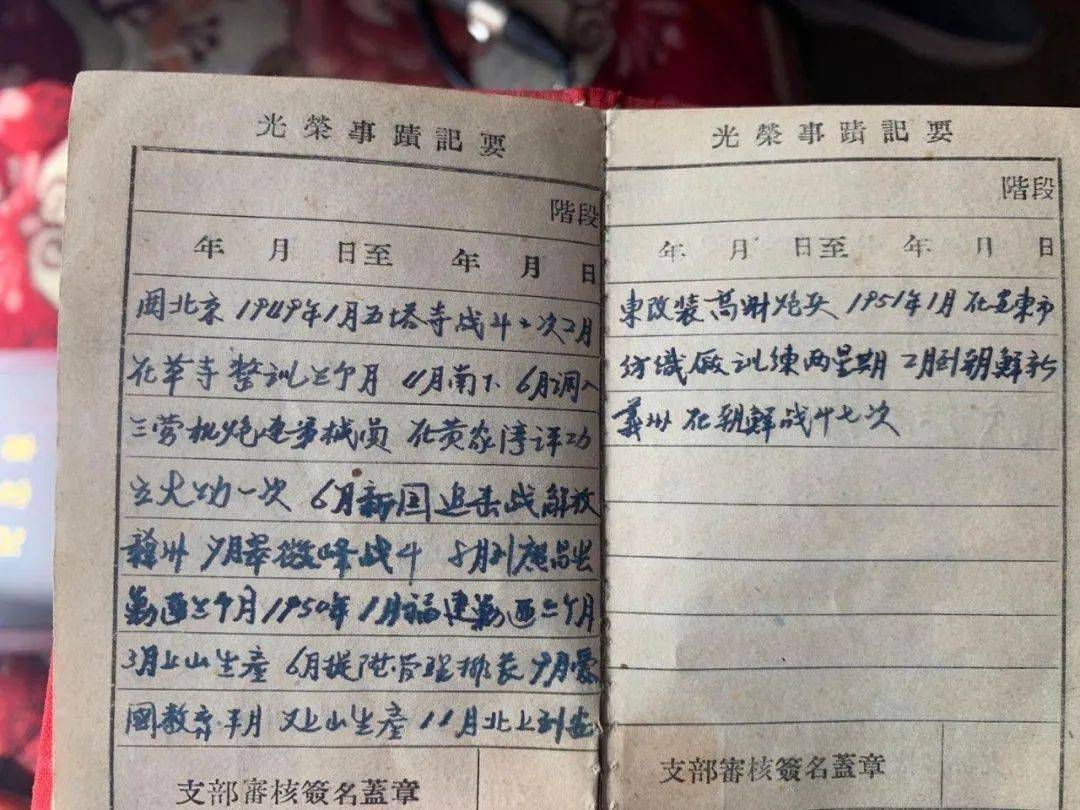 光榮事蹟記要
階段
年 月 日至 年 月 日
北京 1949年1月五塔寺战斗二次2月
花苇寺整训三个月 4月南下 6月调入
三营机炮连军械员 在黄家湾评功
立大功一次 6月 追击战解放
赣州 9月翠微峰战斗
三个月1950年1月福建 三个月
3月上山生産 6月提陞管理排长 9月爱
國教育半月 又上山生產 11月北上到安
支部審核簽名蓋章
光榮事蹟記要
階段
年 月 日至 年 月 日
東改装高射炮兵 1951年1月在安東市
纺織廠训練两星期 2月到朝鲜新
義州 在朝鲜战斗七次
支部審核簽名蓋章